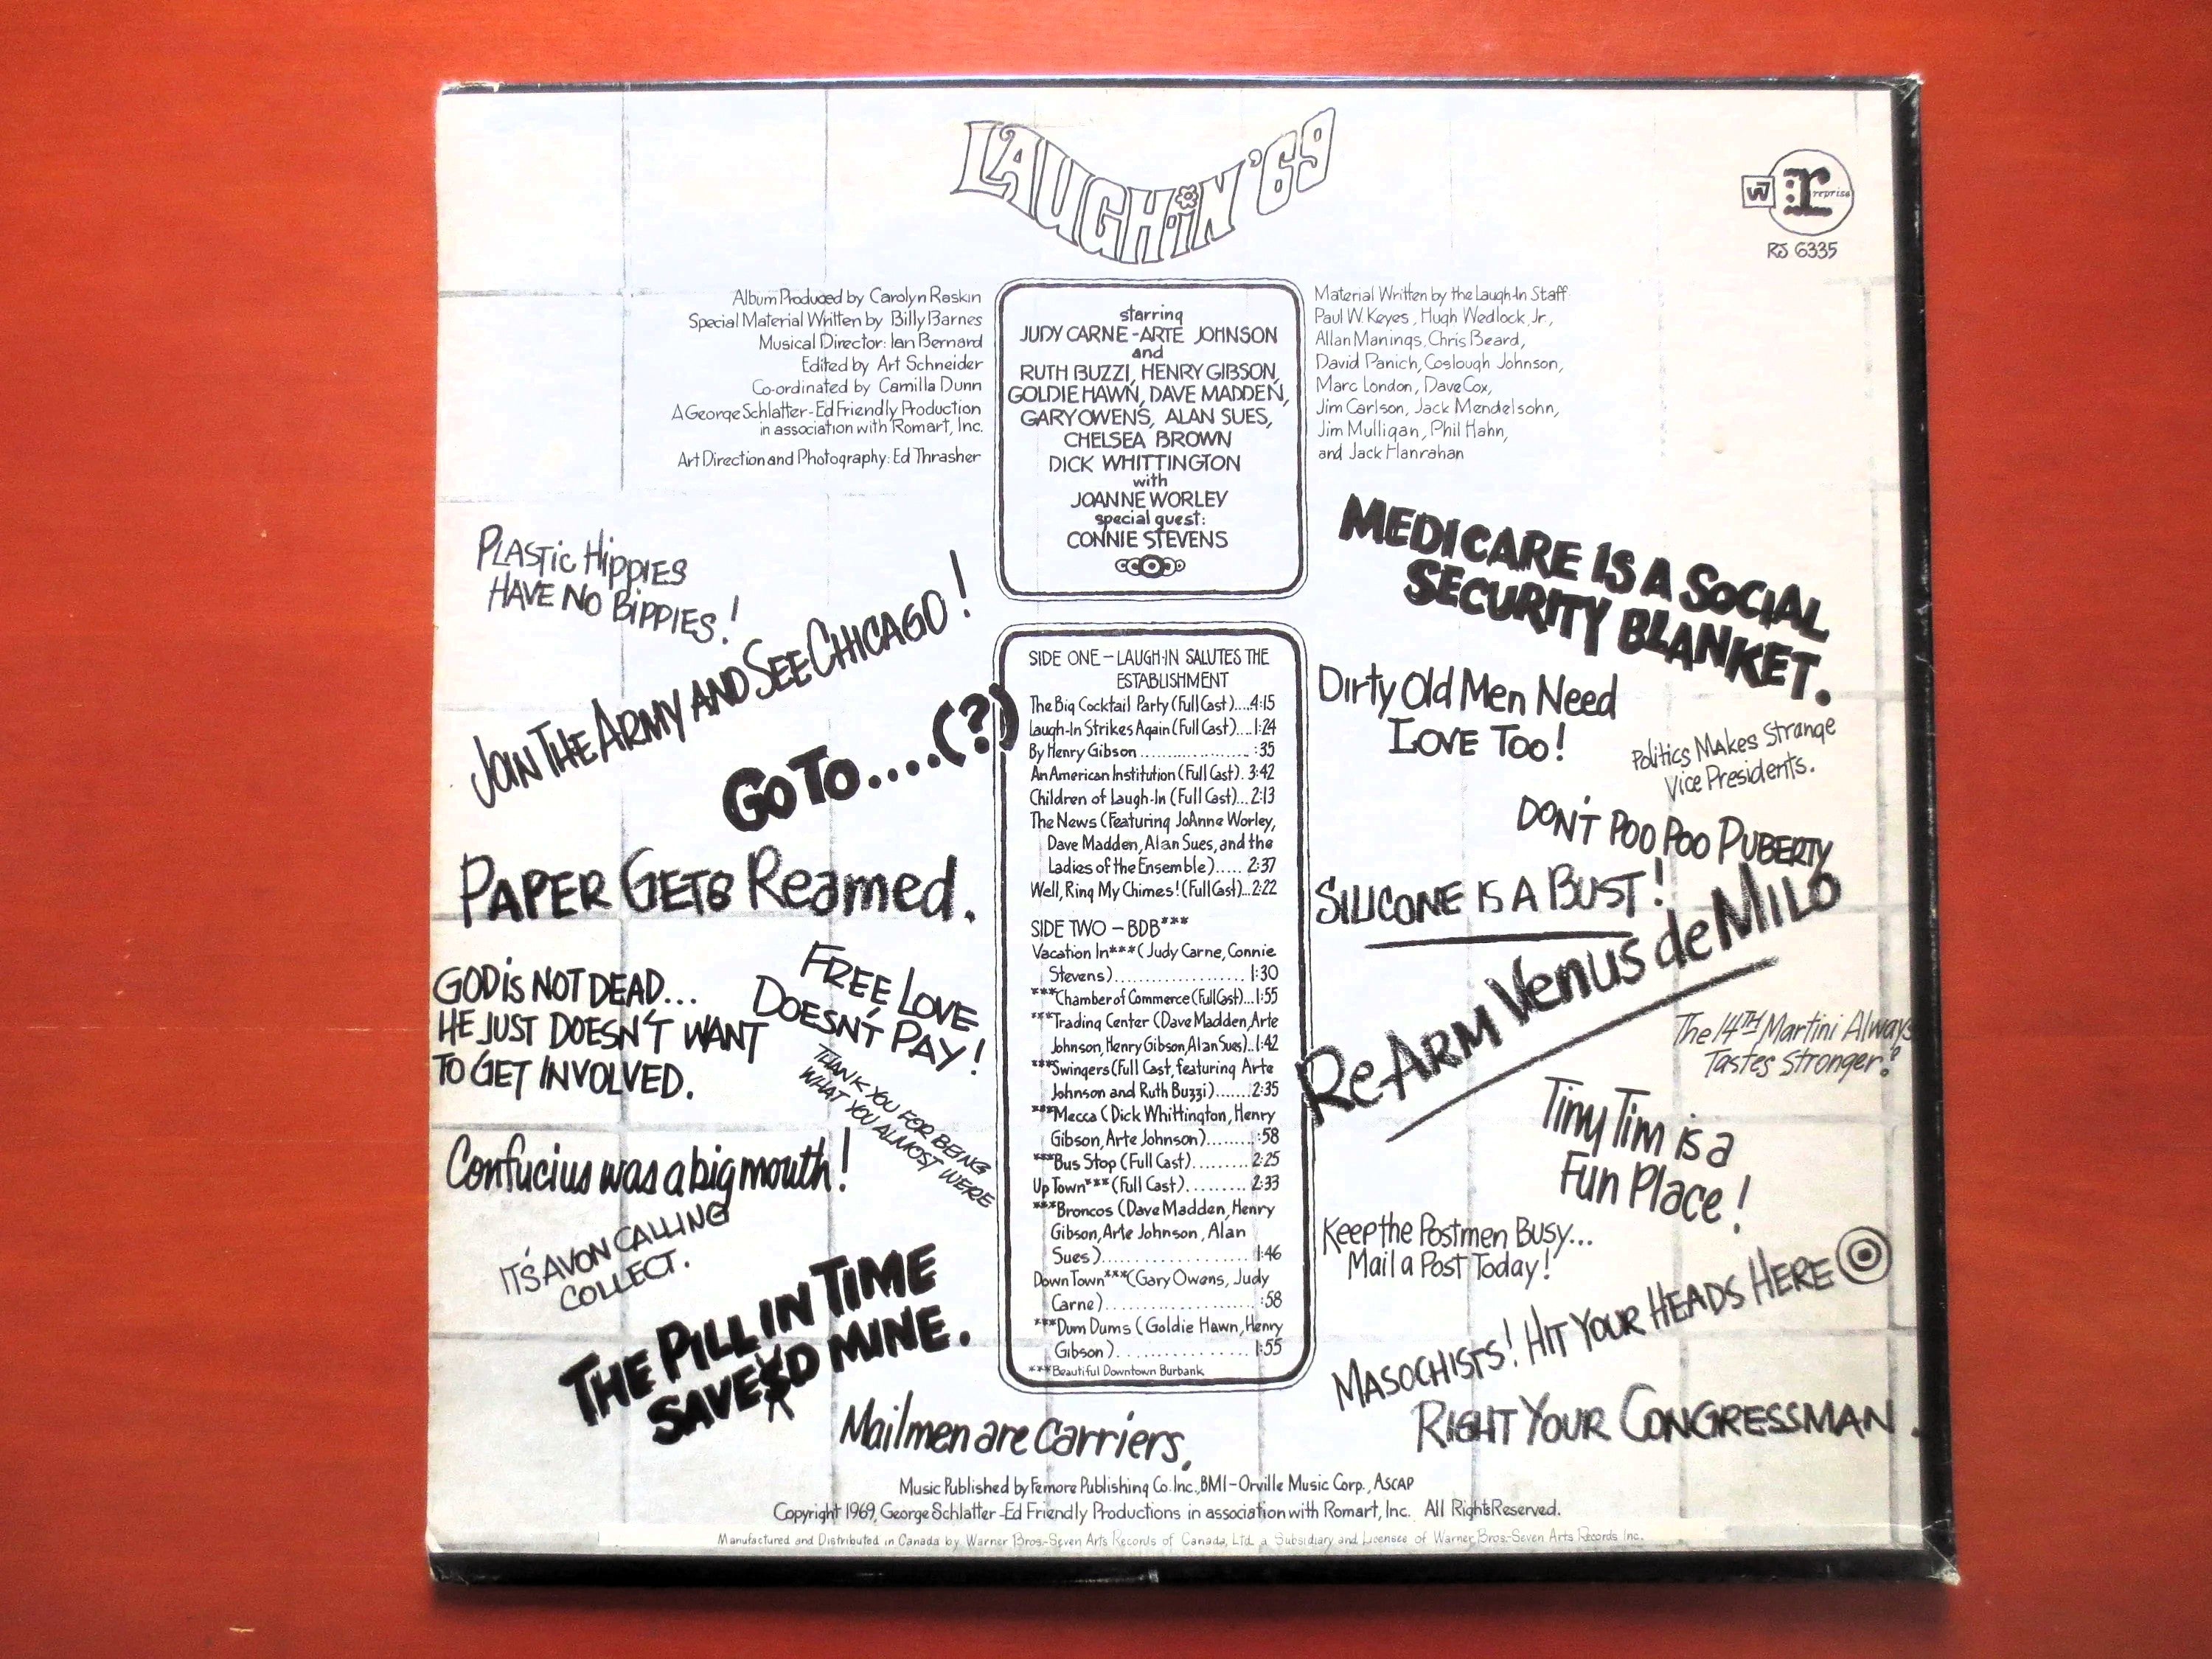 LAUGH-iN '69
W7 r reprise
RS 6335
Album Produced by Carolyn Raskin
Special Material Written by Billy Barnes
Musical Director: Ian Bernard
Edited by Art Schneider
Co-ordinated by Camilla Dunn
A George Schlatter-Ed Friendly Production
in association with Romart, Inc.
Art Direction and Photography: Ed Thrasher
starring
JUDY CARNE-ARTE JOHNSON
and
RUTH BUZZI, HENRY GIBSON,
GOLDIE HAWN, DAVE MADDEN,
GARY OWENS, ALAN SUES,
CHELSEA BROWN
DICK WHITTINGTON
with
JOANNE WORLEY
special guest:
CONNIE STEVENS
Material Written by the Laugh-In Staff:
Paul W. Keyes, Hugh Wedlock, Jr.,
Allan Manings, Chris Beard,
David Panich, Coslough Johnson,
Marc London, Dave Cox,
Jim Carlson, Jack Mendelsohn,
Jim Mulligan, Phil Hahn,
and Jack Hanrahan
PLASTIC HIPPIES
HAVE NO BIPPIES!
JOIN THE ARMY AND SEE CHICAGO!
GO TO....(?)
PAPER GETS Reamed.
GOD iS NOT DEAD...
HE JUST DOESN'T WANT
TO GET INVOLVED.
FREE LOVE
DOESN'T PAY!
THANK YOU FOR BEING
WHAT YOU ALMOST WERE
Confucius was a big mouth!
IT'S AVON CALLING
COLLECT.
THE PILL IN TIME
SAVESD MINE.
Mailmen are carriers.
SIDE ONE - LAUGH-IN SALUTES THE
ESTABLISHMENT
The Big Cocktail Party (Full Cast)....4:15
Laugh-In Strikes Again (Full Cast)....1:24
By Henry Gibson ..................... :35
An American Institution (Full Cast). 3:42
Children of Laugh-In (Full Cast)... 2:13
The News (Featuring JoAnne Worley,
Dave Madden, Alan Sues, and the
Ladies of the Ensemble)..... 2:37
Well, Ring My Chimes! (Full Cast)...2:22
SIDE TWO - BDB***
Vacation In***(Judy Carne, Connie
Stevens)..................... 1:30
***Chamber of Commerce (Full Cast)...1:55
***Trading Center (Dave Madden, Arte
Johnson, Henry Gibson, Alan Sues)..1:42
***Swingers (Full Cast, featuring Arte
Johnson and Ruth Buzzi).......2:35
***Mecca (Dick Whittington, Henry
Gibson, Arte Johnson)........:58
***Bus Stop (Full Cast)......... 2:25
Up Town*** (Full Cast)......... 2:33
***Broncos (Dave Madden, Henry
Gibson, Arte Johnson, Alan
Sues)........................1:46
Down Town***(Gary Owens, Judy
Carne)........................ :58
***Dum Dums (Goldie Hawn, Henry
Gibson).....................1:55
***Beautiful Downtown Burbank
MEDICARE IS A SOCIAL
SECURITY BLANKET.
Dirty Old Men Need
LOVE TOO!
Politics Makes Strange
Vice Presidents.
DON'T POO POO PUBERTY
SILICONE IS A BUST!
Re-ARM Venus de MILO
The 14TH Martini Always
Tastes Stronger?
Tiny Tim is a
Fun Place!
Keep the Postmen Busy...
Mail a Post Today!
MASOCHISTS! HIT YOUR HEADS HERE
RIGHT YOUR CONGRESSMAN.
Music Published by Femore Publishing Co. Inc., BMI-Orville Music Corp., ASCAP
Copyright 1969, George Schlatter-Ed Friendly Productions in association with Romart, Inc. All Rights Reserved.
Manufactured and Distributed in Canada by Warner Bros.-Seven Arts Records of Canada, Ltd. a Subsidiary and Licensee of Warner Bros.-Seven Arts Records Inc.